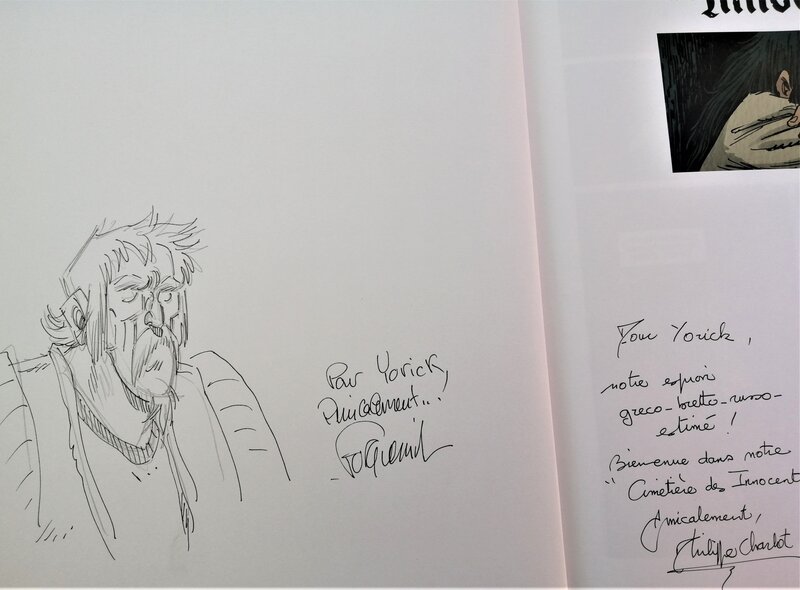 Pour Yorick,
Amicalement...
Pour Yorick,
notre espion
greco-bretto-russo-
estimé !
Bienvenue dans notre
" Cimetière des Innocent
Amicalement,
Philippe Charlot